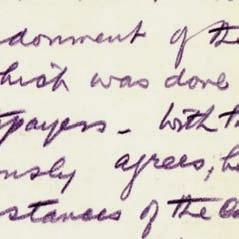 donment of the
which was done
payers - With th
ously agrees, he
stances of the Ca